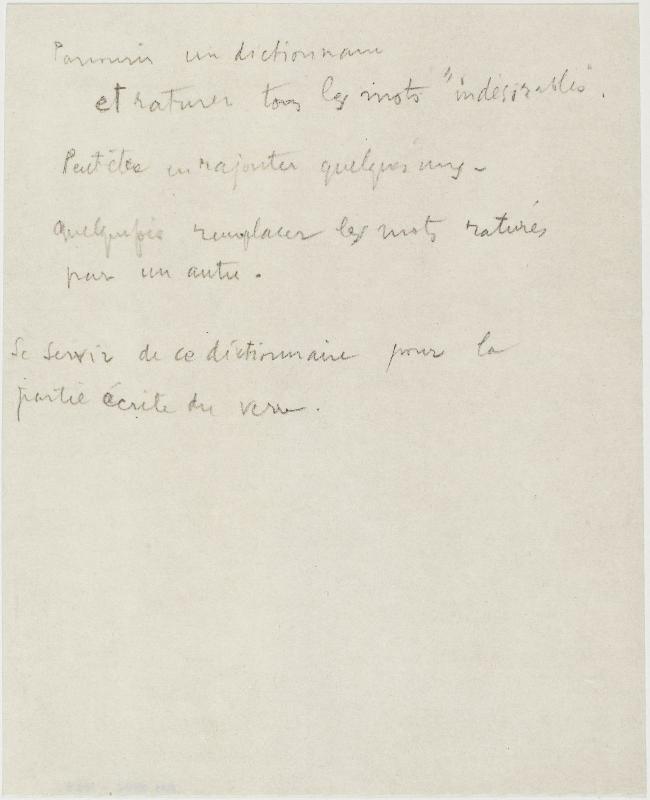 Parcourir un dictionnaire
et raturer tous les mots "indésirables".
Peut être en rajouter quelques uns -
Quelquefois remplacer les mots raturés
par un autre.
Se servir de ce dictionnaire pour la
partie écrite du verre.